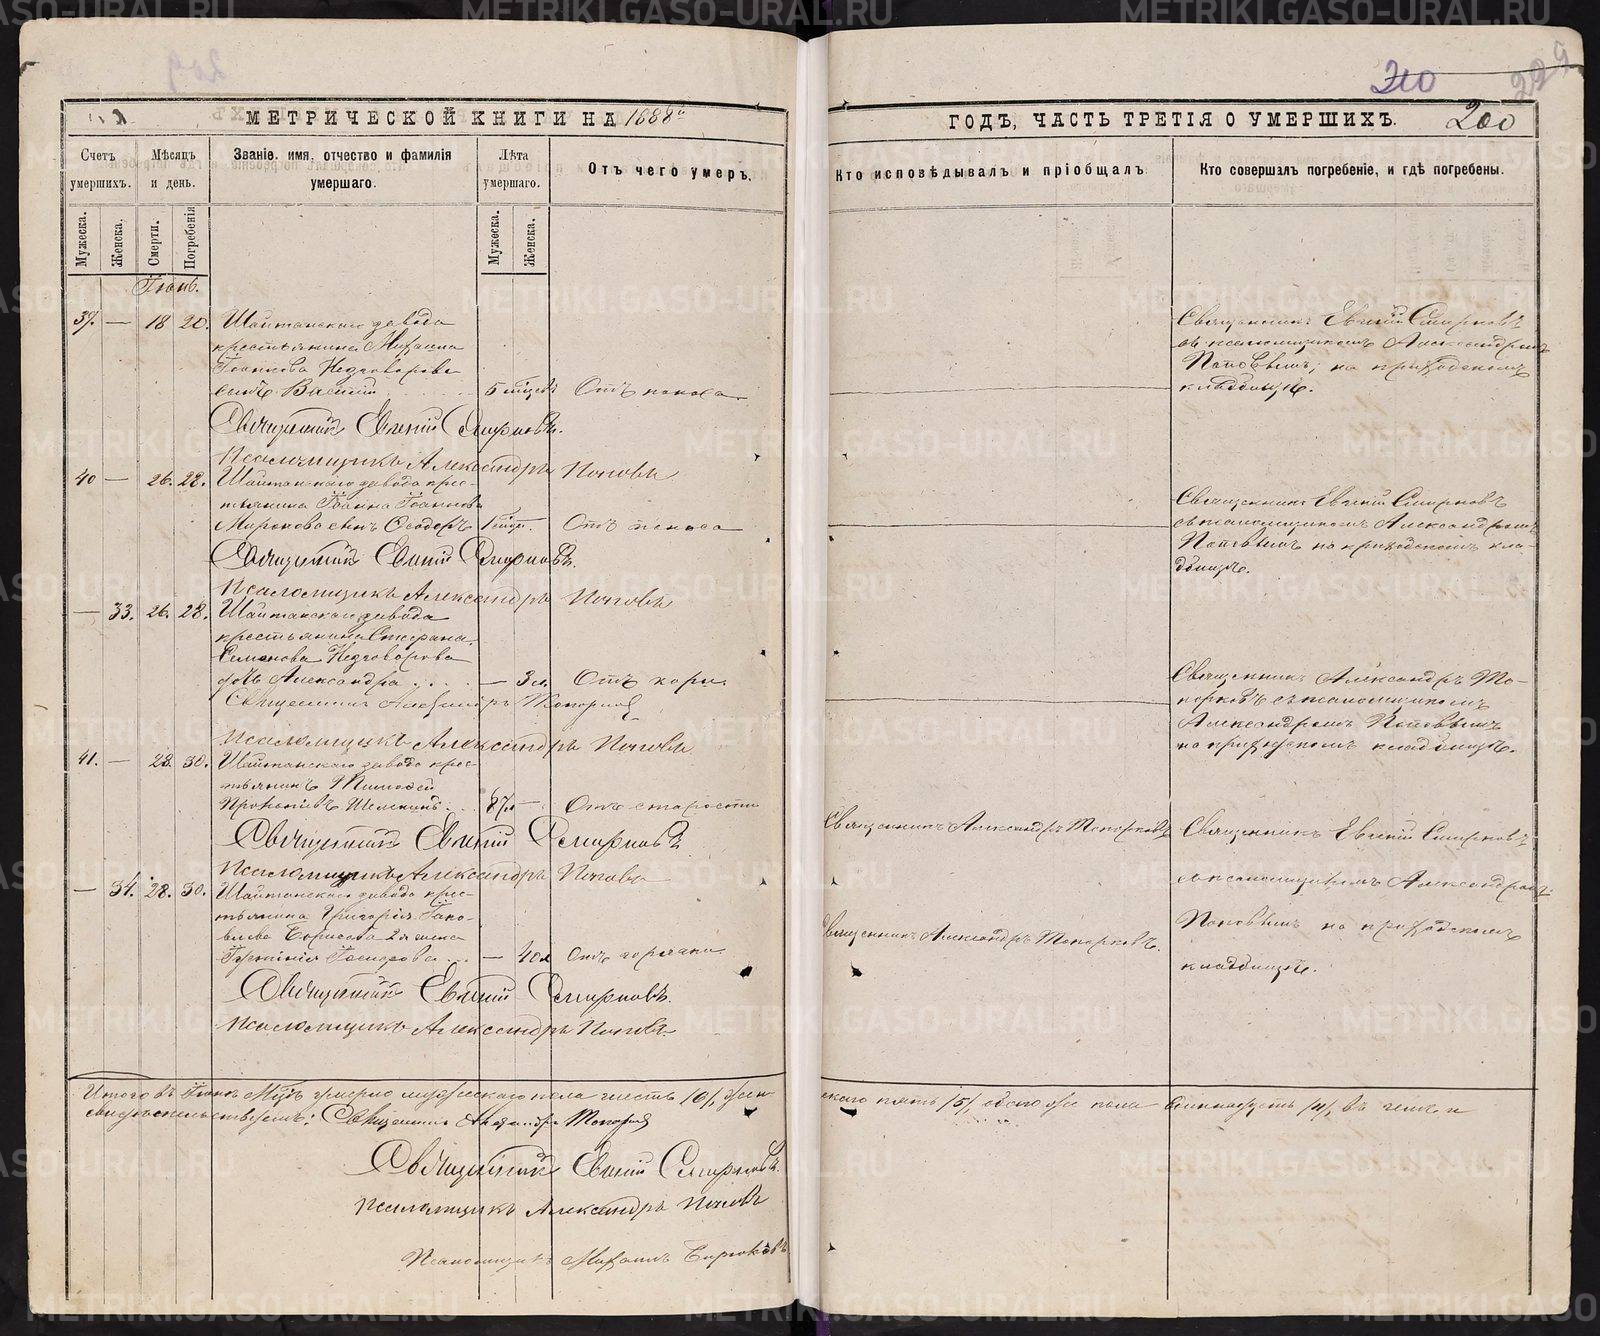 210
229
МЕТРИЧЕСКОЙ КНИГИ НА 1888й
ГОДЪ, ЧАСТЬ ТРЕТІЯ О УМЕРШИХЪ.
200
Счетъ умершихъ.
Мѣсяцъ и день.
Званіе, имя, отчество и фамилія умершаго.
Лѣта умершаго.
Отъ чего умеръ.
Кто исповѣдывалъ и пріобщалъ
Кто совершалъ погребеніе, и гдѣ погребены.
Мужеска.
Женска.
Смерти.
Погребенія
Мужеска.
Женска.
Іюнь.
39. — 18 20. Шайтанскаго завода
крестьянина Михаила
сынъ Василій 5 Отъ поноса
Священникъ Евгеній Смирновъ
съ псаломщикомъ Александромъ
Поповымъ, на приходскомъ
кладбищѣ.
Священникъ Евгеній Смирновъ.
Псаломщикъ Александръ Поповъ
40 — 26. 28. Шайтанскаго завода крес-
тьянина Іоанна Іоаннова
Миронова сынъ Ѳеодоръ Отъ поноса
Священникъ Евгеній Смирновъ
съ псаломщикомъ Александромъ
Поповымъ на приходскомъ кла-
дбищѣ.
Священникъ Евгеній Смирновъ.
Псаломщикъ Александръ Поповъ
— 33. 26. 28. Шайтанскаго завода
крестьянина Стефана
Семенова
дочь Александра — 3 Отъ кори.
Священникъ Александръ То-
порковъ съ псаломщикомъ
Александромъ Поповымъ
на приходскомъ кладбищѣ.
Священникъ Александръ Топорковъ
Псаломщикъ Александръ Поповъ
41. — 28. 30. Шайтанскаго завода крес-
тьянинъ Тимоѳей
87 — Отъ старости
Священникъ Александръ Топорковъ
Священникъ Евгеній Смирновъ
съ псаломщикомъ Александромъ
Поповымъ на приходскомъ
кладбищѣ.
Священникъ Евгеній Смирновъ
Псаломщикъ Александръ Поповъ
— 34. 28. 30. Шайтанскаго завода крес-
тьянина Григорія Іако-
влева Борисова 2я жена
— 40 Отъ горячки
Священникъ Александръ Топорковъ.
Священникъ Евгеній Смирновъ.
Псаломщикъ Александръ Поповъ
Итого въ Іюнѣ м-цѣ умерло мужескаго пола шесть /6/, жен
скаго пять /5/, обоего же пола одиннадцать /11/, въ чемъ и
свидѣтельствуемъ: Священникъ Александръ Топорковъ
Священникъ Евгеній Смирновъ.
Псаломщикъ Александръ Поповъ
Псаломщикъ Михаилъ Бирюковъ
METRIKI.GASO-URAL.RU